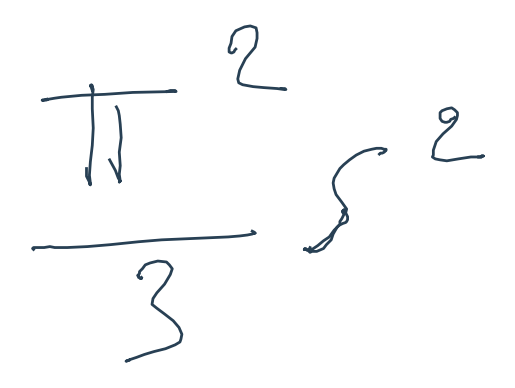 π²
—
3
s²